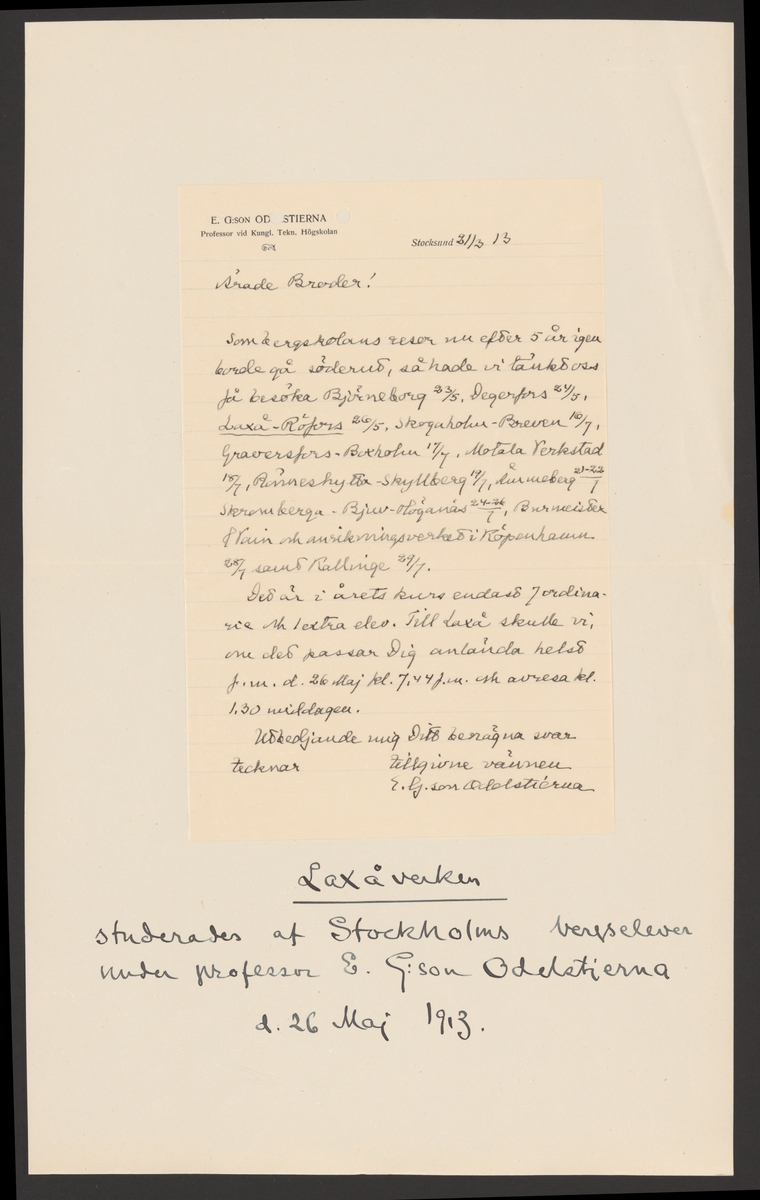 E. G:SON OD STIERNA
Professor vid Kungl. Tekn. Högskolan
Stocksund 21/3 13
Ärade Broder!
Som bergskolans resor nu efter 5 år igen
borde gå söderut, så hade vi tänkt oss
få besöka Björneborg 23/5, Degerfors 24/5,
Laxå-Röfors 26/5, Skogaholm-Breven 16/7,
Graversfors-Boxholm 17/7, Motala Verkstad
18/7, Rönneshytta-Skyllberg 19/7, 21-22/7
Skromberga-Bjuv-Höganäs 24-26/7, Burmeister
& Wain och anrikningsverket i Köpenhamn
28/7 samt Kallinge 29/7.
Det är i årets kurs endast 7 ordina-
rie och 1 extra elev. Till Laxå skulle vi,
om det passar Dig anlända helst
f.m. d. 26 Maj kl. 7,44 f.m. och avresa kl.
1.30 middagen.
Utbedjande mig Ditt benägna svar
tecknar tillgivne vännen
E. G:son Odelstierna
Laxå verken
studerades af Stockholms bergselever
under professor E. G:son Odelstjerna
d. 26 Maj 1913.